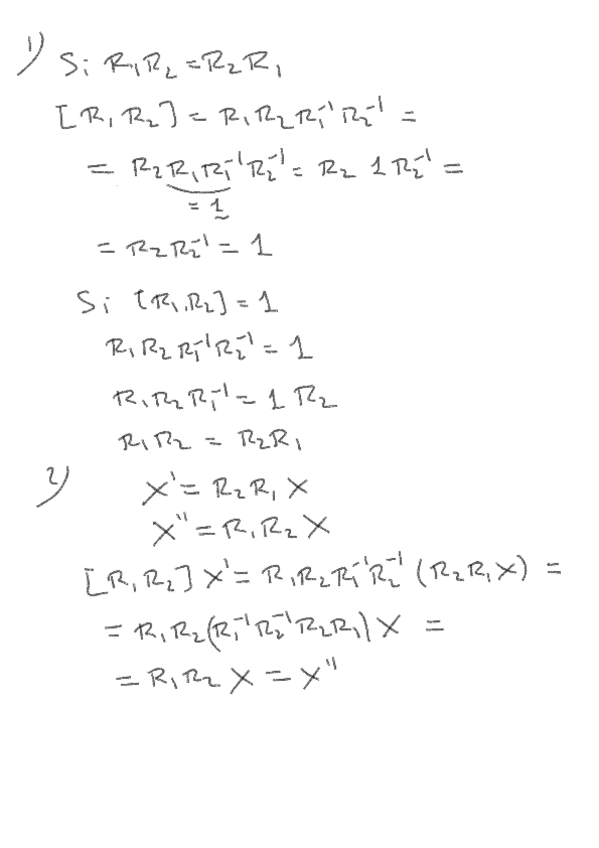 1) Si R₁R₂ = R₂R₁
[R₁ R₂] = R₁R₂R₁⁻¹R₂⁻¹ =
= R₂R₁R₁⁻¹R₂⁻¹ = R₂ 1 R₂⁻¹ =
= 1
= R₂R₂⁻¹ = 1
Si [R₁,R₂] = 1
R₁R₂R₁⁻¹R₂⁻¹ = 1
R₁R₂R₁⁻¹ = 1 R₂
R₁R₂ = R₂R₁
2) X' = R₂R₁X
X'' = R₁R₂X
[R₁,R₂]X' = R₁R₂R₁⁻¹R₂⁻¹(R₂R₁X) =
= R₁R₂(R₁⁻¹R₂⁻¹R₂R₁)X =
= R₁R₂X = X''